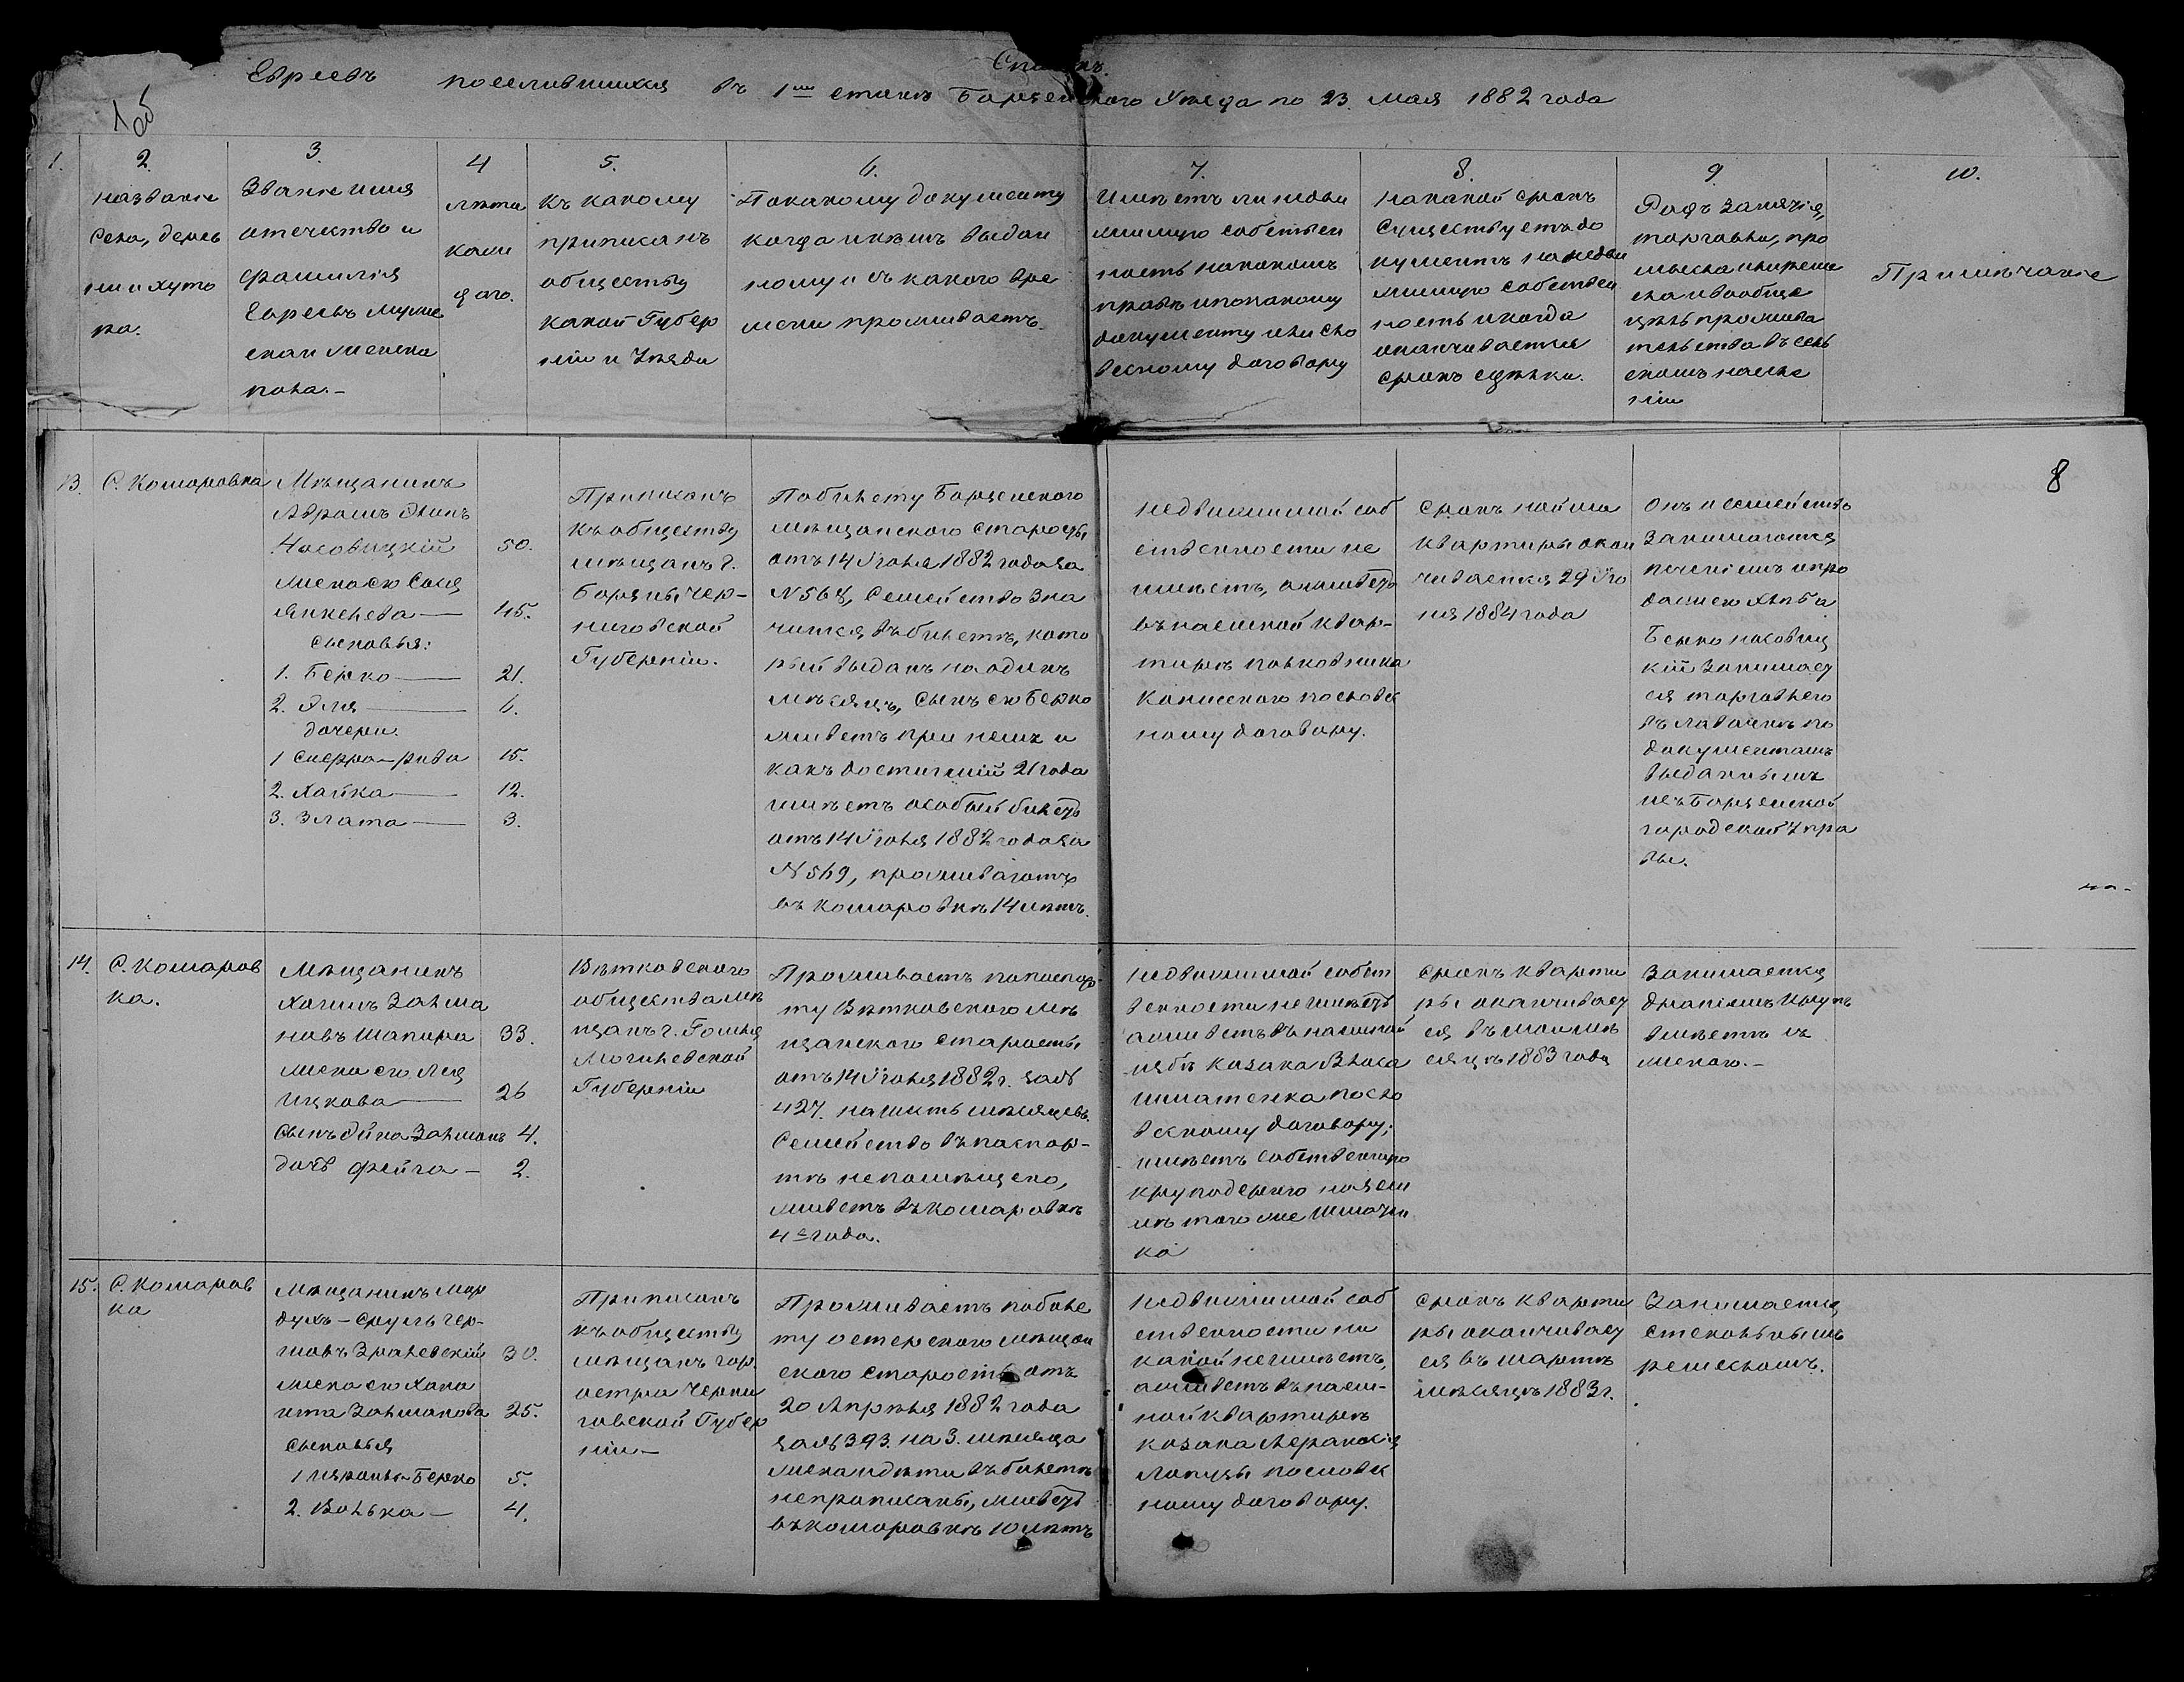 Списокъ
Евреевъ поселившихся въ 1мъ станѣ Борзенского Уѣзда по 23 мая 1882 года
1 об
1.
2.
Названіе
Села, дерев
ни и хуто
ра.
3.
Званіе имя
отечество и
фамилія
Евреевъ муже
скаи женска
пола.-
4
лѣта
кажд
даго.
5.
Къ какому
приписанъ
обществу
какой Губер
ніи и Уѣзда
6.
По какому документу
когда и кѣмъ выдан
ному и съ какого вре
мени проживаетъ.
7.
Имѣетъ ли недви
жимую собствен
ность на какомъ
правѣ и по какому
документу или сло
весному договору
8.
На какой срокъ
Существуетъ до
кументъ на недви
жимую собствен
ность и когда
оканчивается
срокъ сдѣлки.
9.
Родъ занятія,
торговли, про
мысла и
и вообще
цѣль прожива
тельства въ сель
скомъ населе
ніи
10.
Примѣчаніе
8
13.
С. Комаровка
Мѣщанинъ
Абрамъ
Носовицкій 50.
жена его Соня
Янкелева — 45.
сыновья:
1. Берко — 21.
2. Эля — 6.
дочери.
1 Сперра-рива 15.
2. Хайка — 12.
3. Злата — 3.
Приписанъ
къ обществу
мѣщанъ г.
Борзны Чер-
ниговской
Губерніи.
По билету Борзенского
мѣщанского старосты
отъ 14 Іюня 1882 года за
№ 568, Семейство зна
чится въ билетѣ, кото
рый выданъ на одинъ
мѣсяцъ, сынъ его Берко
живетъ при немъ и
какъ достигшій 21 года
имѣетъ особый билетъ
отъ 14 Іюня 1882 года за
№ 569, проживаютъ
въ Комаровкѣ 14 лѣтъ.
Недвижимой соб
ственности не
имѣетъ, а живетъ
въ наемной квар-
тирѣ полковника
Канисского по словес
ному договору.
Срокъ найма
квартиры окан
чивается 29 Ію
ня 1884 года
Онъ и семейство
Занимаются
печеніемъ и про
дажею хлѣба
Берко Носовиц
кій занимает
ся торговлею
въ лавочкѣ по
документамъ
выданнымъ
изъ Борзенской
городской Упра
вы.
14.
С. Комаров
ка.
Мѣщанинъ
Хаимъ Залма
новъ Шапира 33.
жена его Лея
Ицкова — 26
Сынъ Залманъ 4.
дочь Фейга — 2.
Вѣтковского
общества мѣ
щанъ г. Гомля
Могилевской
Губерніи
Проживаетъ по паспор
ту Вѣтковского мѣ
щанского старосты
отъ 14 Іюня 1882 г. за №
427. на шесть мѣсяцевъ.
Семейство въ паспор-
тѣ не помѣщено,
живетъ въ Комаровкѣ
4 года.
Недвижимой собст
венности не имѣетъ
а живетъ въ наемной
избѣ козака Власа
Шматенка по сло
весному договору;
имѣетъ собственную
круподерню на зем
лѣ того же Шматен
ка
Срокъ кварти
ры оканчивает
ся въ маѣ мѣ
сяцѣ 1883 года
Занимается
драніемъ крупъ
вмѣстѣ съ
женою.-
15.
С. Комаров
ка
Мѣщанинъ Мор
духъ-Сруль Гер-
шовъ Эраневскій 30.
жена его Хана
ита Залманова 25.
Сыновья
1 Берко 5.
2. Волька — 4.
Приписанъ
къ обществу
мѣщанъ гор.
Остра Черни
говской Губер
ніи-
Проживаетъ по биле
ту Остерского мѣщан
ского старосты отъ
20 Апрѣля 1882 года
за № 393. на 3. мѣсяца
жена и дѣти въ билетѣ
не прописаны, живетъ
въ Комаровкѣ 10 лѣтъ
Недвижимой соб
ственности ни
какой не имѣетъ,
а живетъ въ наем-
ной квартирѣ
козака
Лапузы по словес
ному договору.
Срокъ кварти
ры оканчивает
ся въ мартѣ
мѣсяцѣ 1883 г.
Занимается
стекольнымъ
ремесломъ.